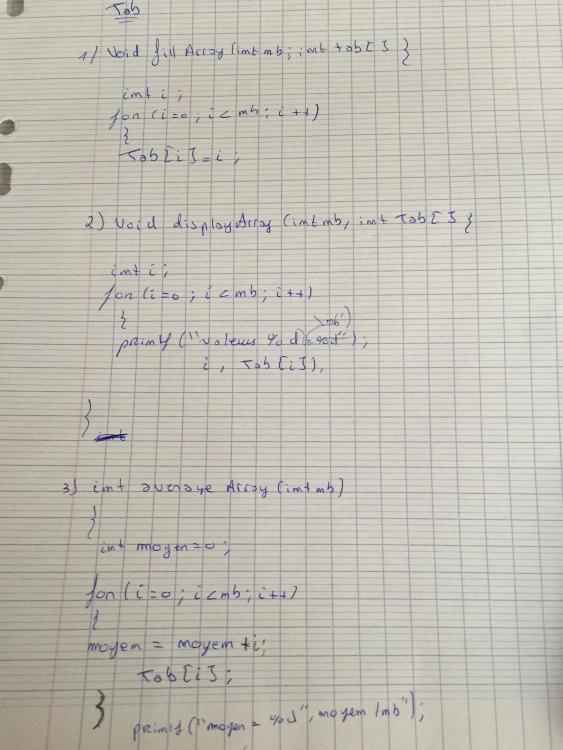 Tab
1) Void fill Array (int nb; int tab[] {
int i;
for (i=0; i<nb; i++)
{
Tab[i]=i;
2) Void display Array (int nb, int Tab[] {
int i;
for (i=0; i<nb; i++)
{
printf ("valeurs %d = %d\n");
i, Tab[i]),
}
3) int average Array (int nb)
{
int moyen=0;
for (i=0; i<nb; i++)
{
moyen = moyen + i;
Tab[i];
}
printf ("moyen = %d", moyen/nb");